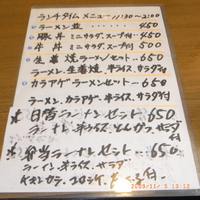 ランチタイム メニュー 11:30~2:00
ラーメン並 450
豚丼 ミニサラダ、スープ付 450
牛丼 ミニサラダ、スープ付 500
生姜焼ラーメンセット 650
ラーメン、生姜焼、半ライス、サラダ付
カラアゲラーメンセット 650
ラーメン、カラアゲ、半ライス、サラダ付
*日替ランチセット 650
ラーメン、半ライス、サラダ付
*弁当ランチセット 650
ラーメン、半ライス、サラダ
コロッケ